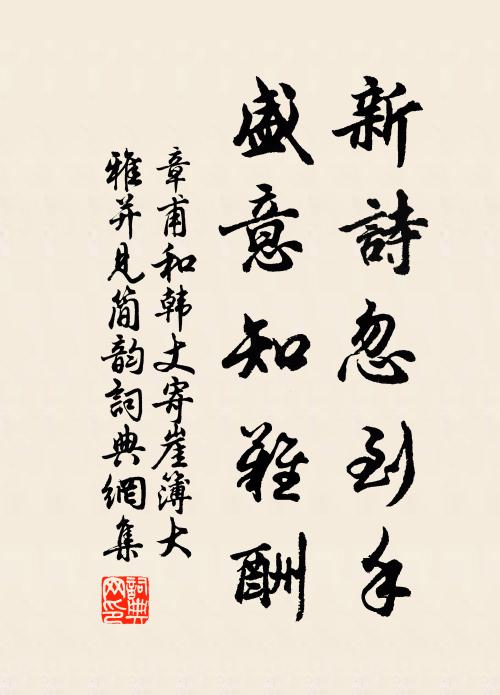 新詩忽到手
盛意知難酬
章甫和韩丈寄崖簿大
雅并見简韵詞典網集
詞典網印